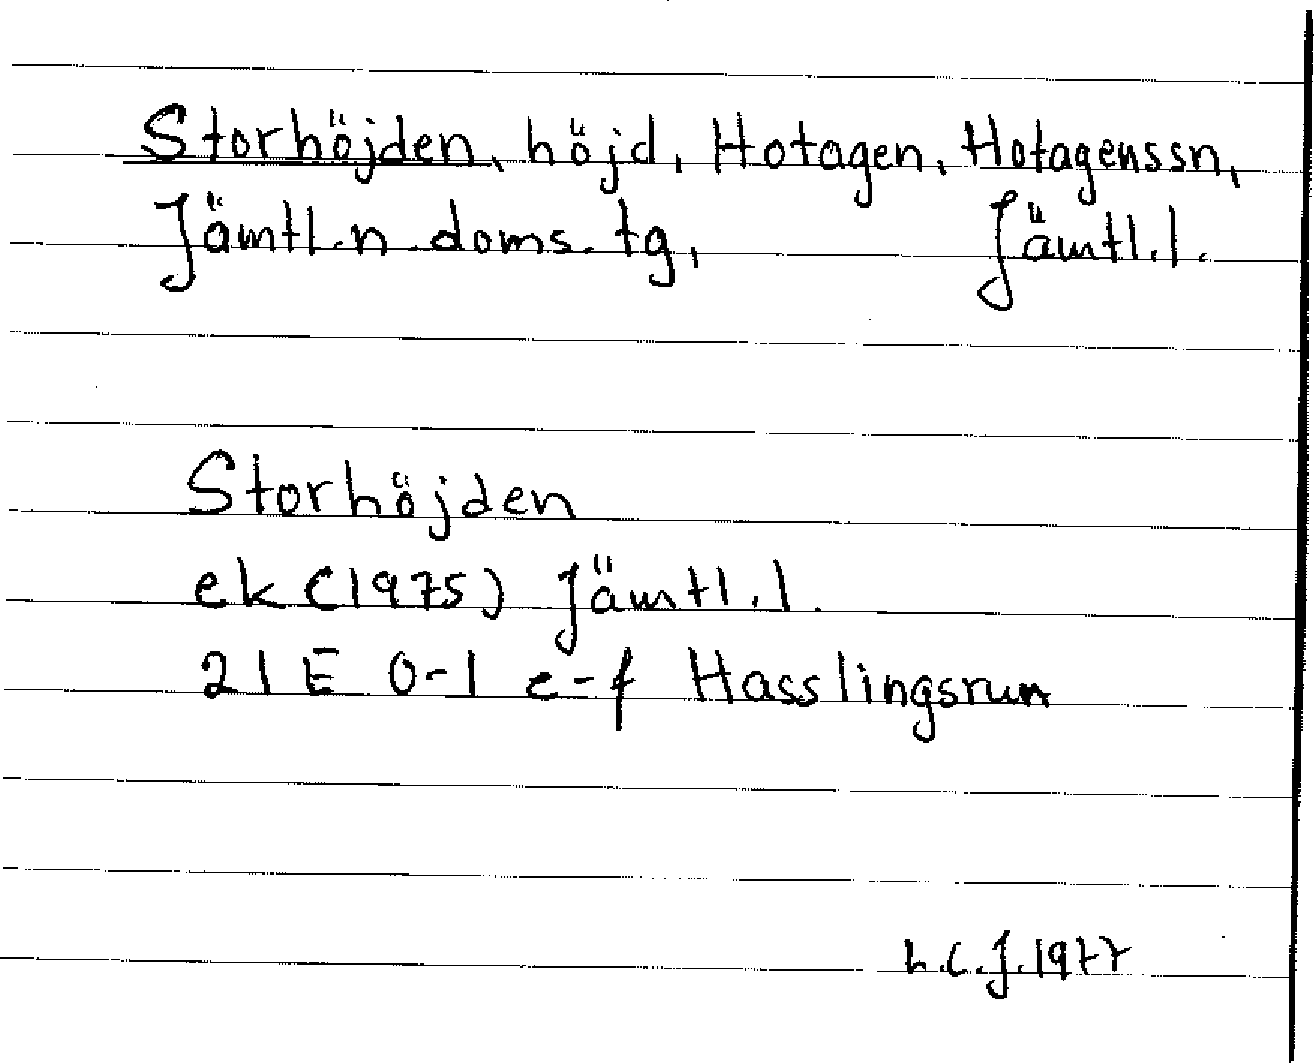 Storhöjden, höjd, Hotagen, Hotagenssn,
Jämtl.n.doms.tg, Jämtl.l.
Storhöjden
ek (1975) Jämtl.l.
21 E 0-1 e-f Hasslingsrun
h.c.J.1977